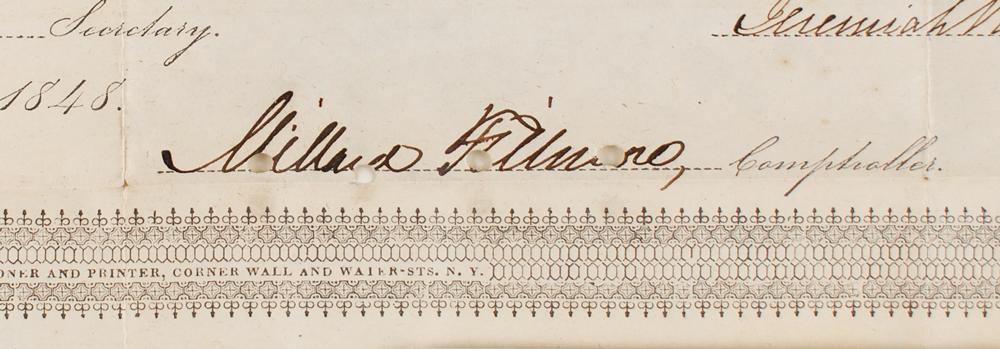 Secretary. Jeremiah
1848.
Millard Fillmore, Comptroller.
ONER AND PRINTER, CORNER WALL AND WATER-STS. N. Y.